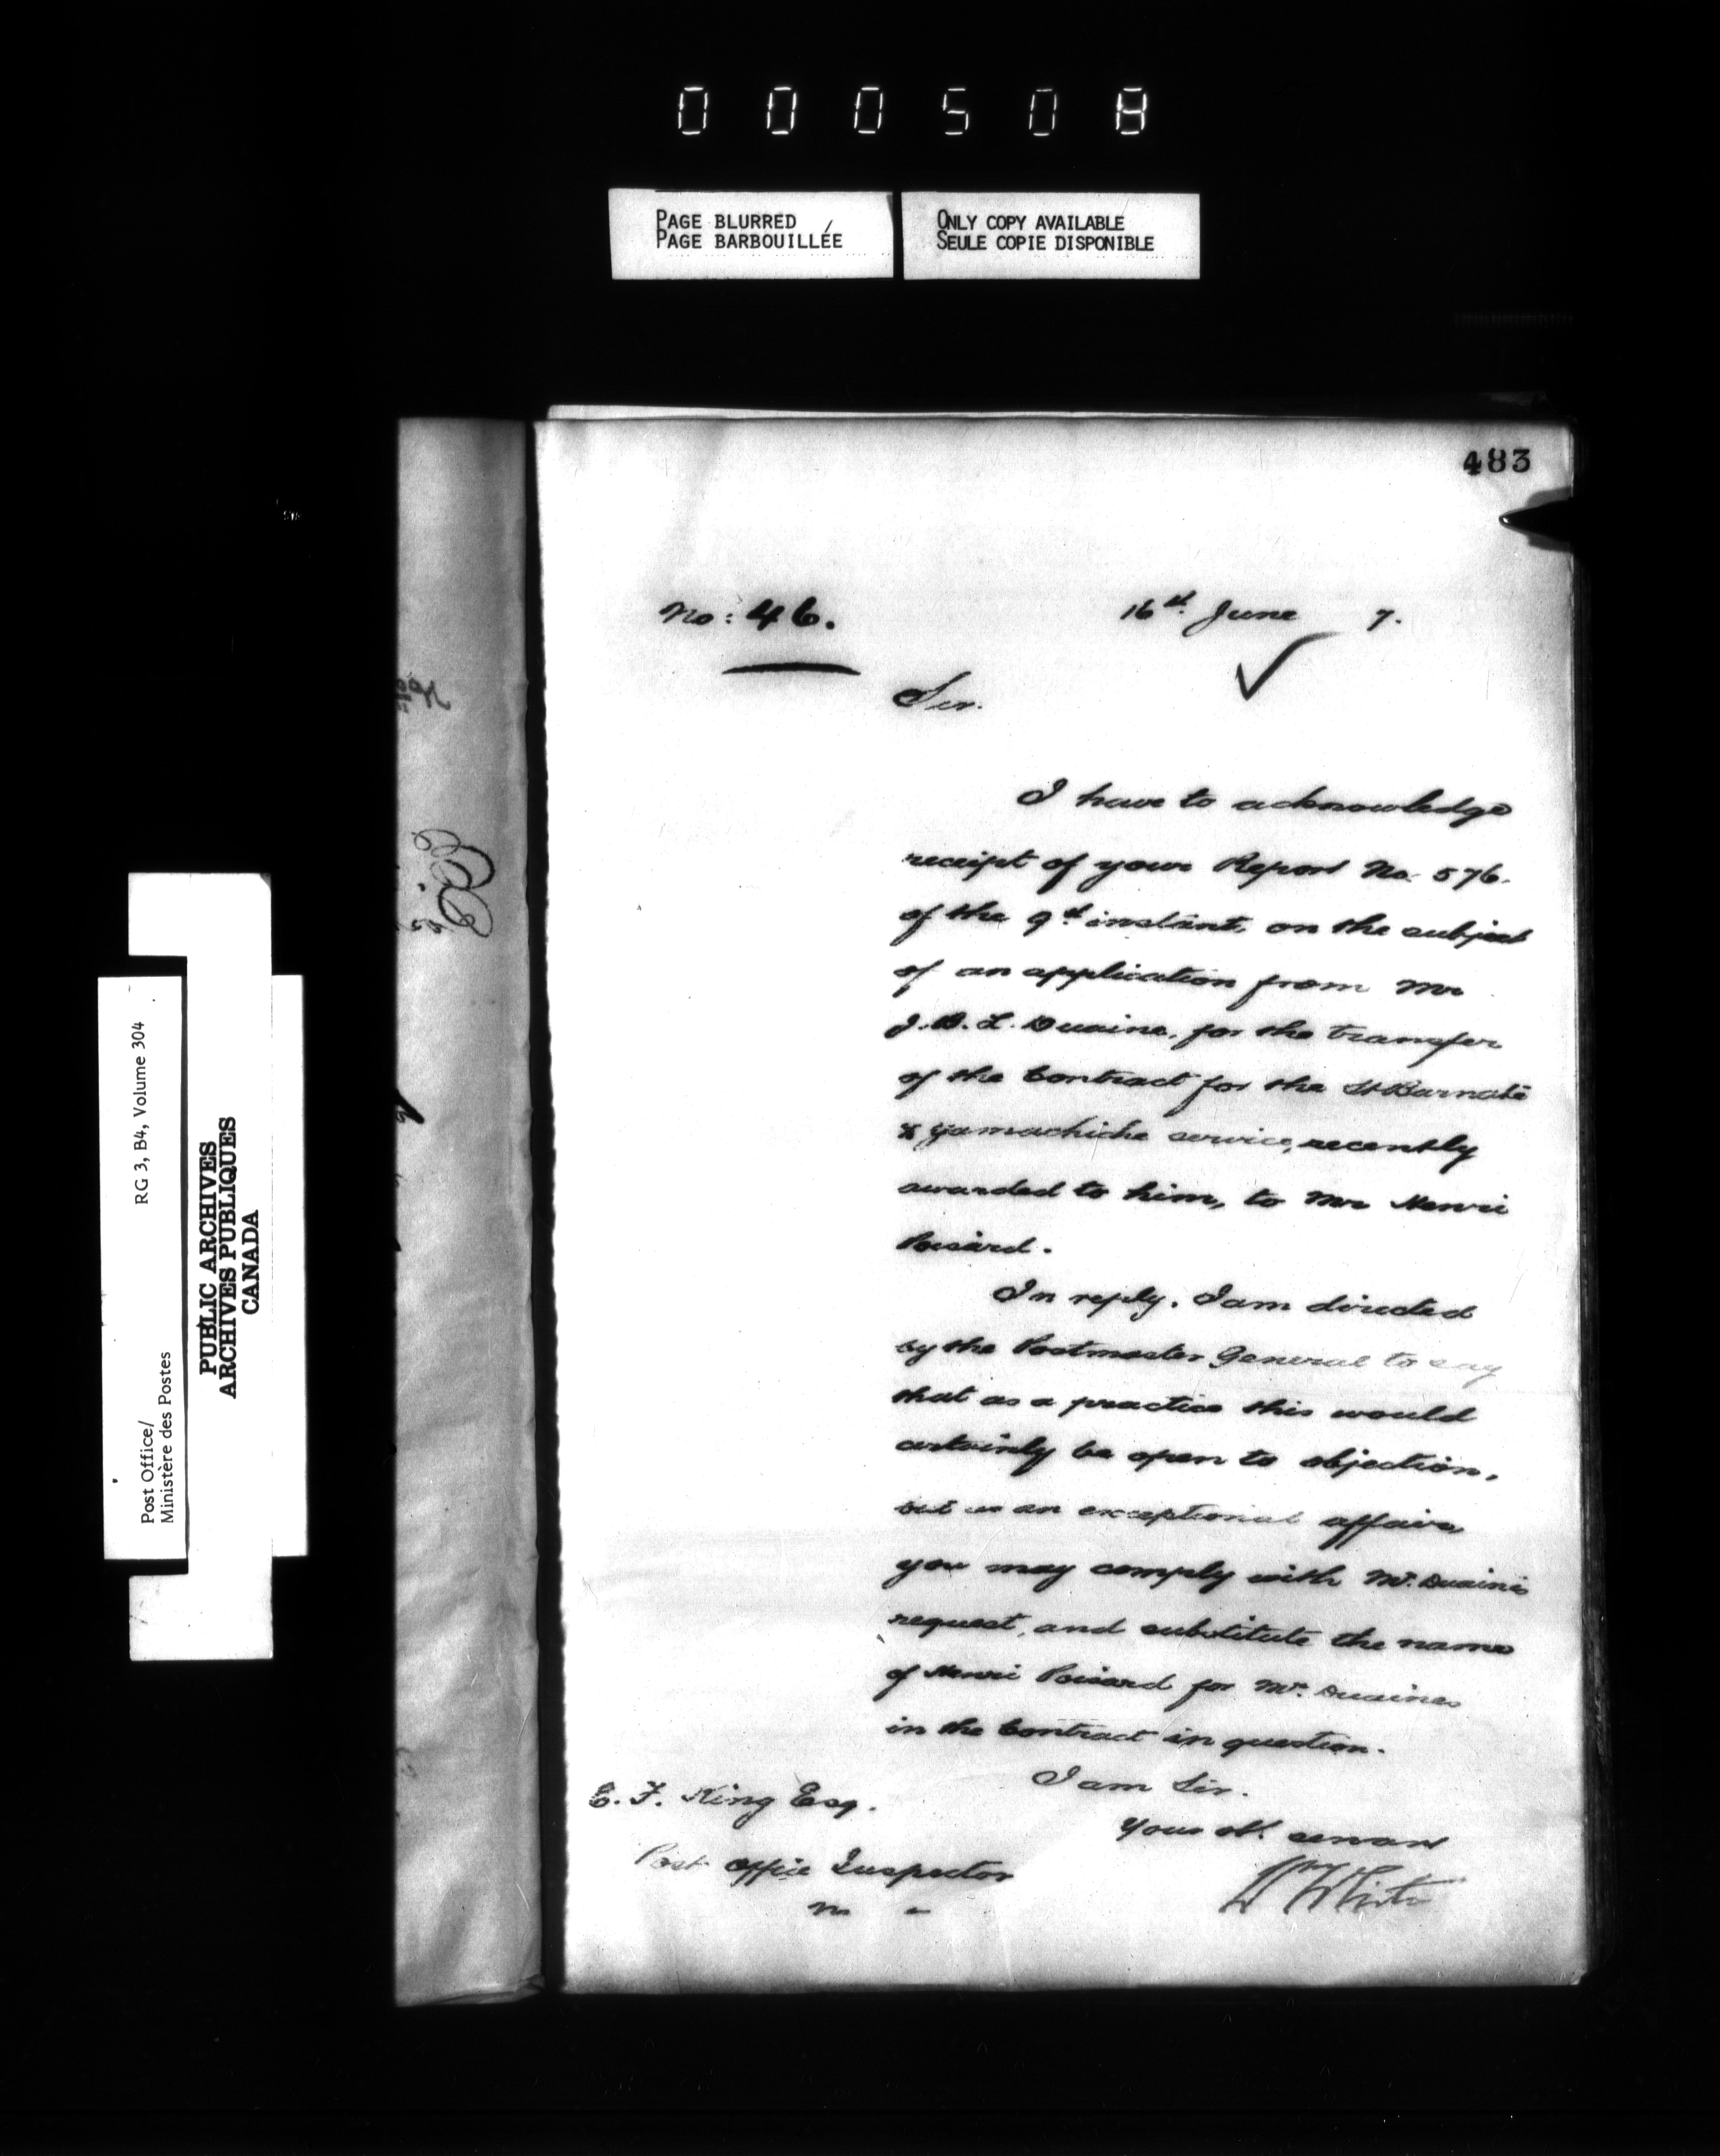 000508
PAGE BLURRED
PAGE BARBOUILLÉE
ONLY COPY AVAILABLE
SEULE COPIE DISPONIBLE
483
No: 46.
16th June 7.
Sir.
I have to acknowledge
receipt of your Report No. 576.
of the 9th instant, on the subject
of an application from Mr
J. B. L. Duaine, for the transfer
of the Contract for the St Barnabé
& Yamachiche service, recently
awarded to him, to Mr Henri
In reply, I am directed
by the Postmaster General to say
that as a practice this would
certainly be open to objection,
but as an exceptional affair
you may comply with Mr. Duaine's
request, and substitute the name
of Henri for Mr. Duaines
in the Contract in question.
I am Sir.
Your obt. servant
W White
E. F. King Esq.
Post Office Inspector
RG 3, B4, Volume 304
Post Office/
Ministère des Postes
PUBLIC ARCHIVES
ARCHIVES PUBLIQUES
CANADA